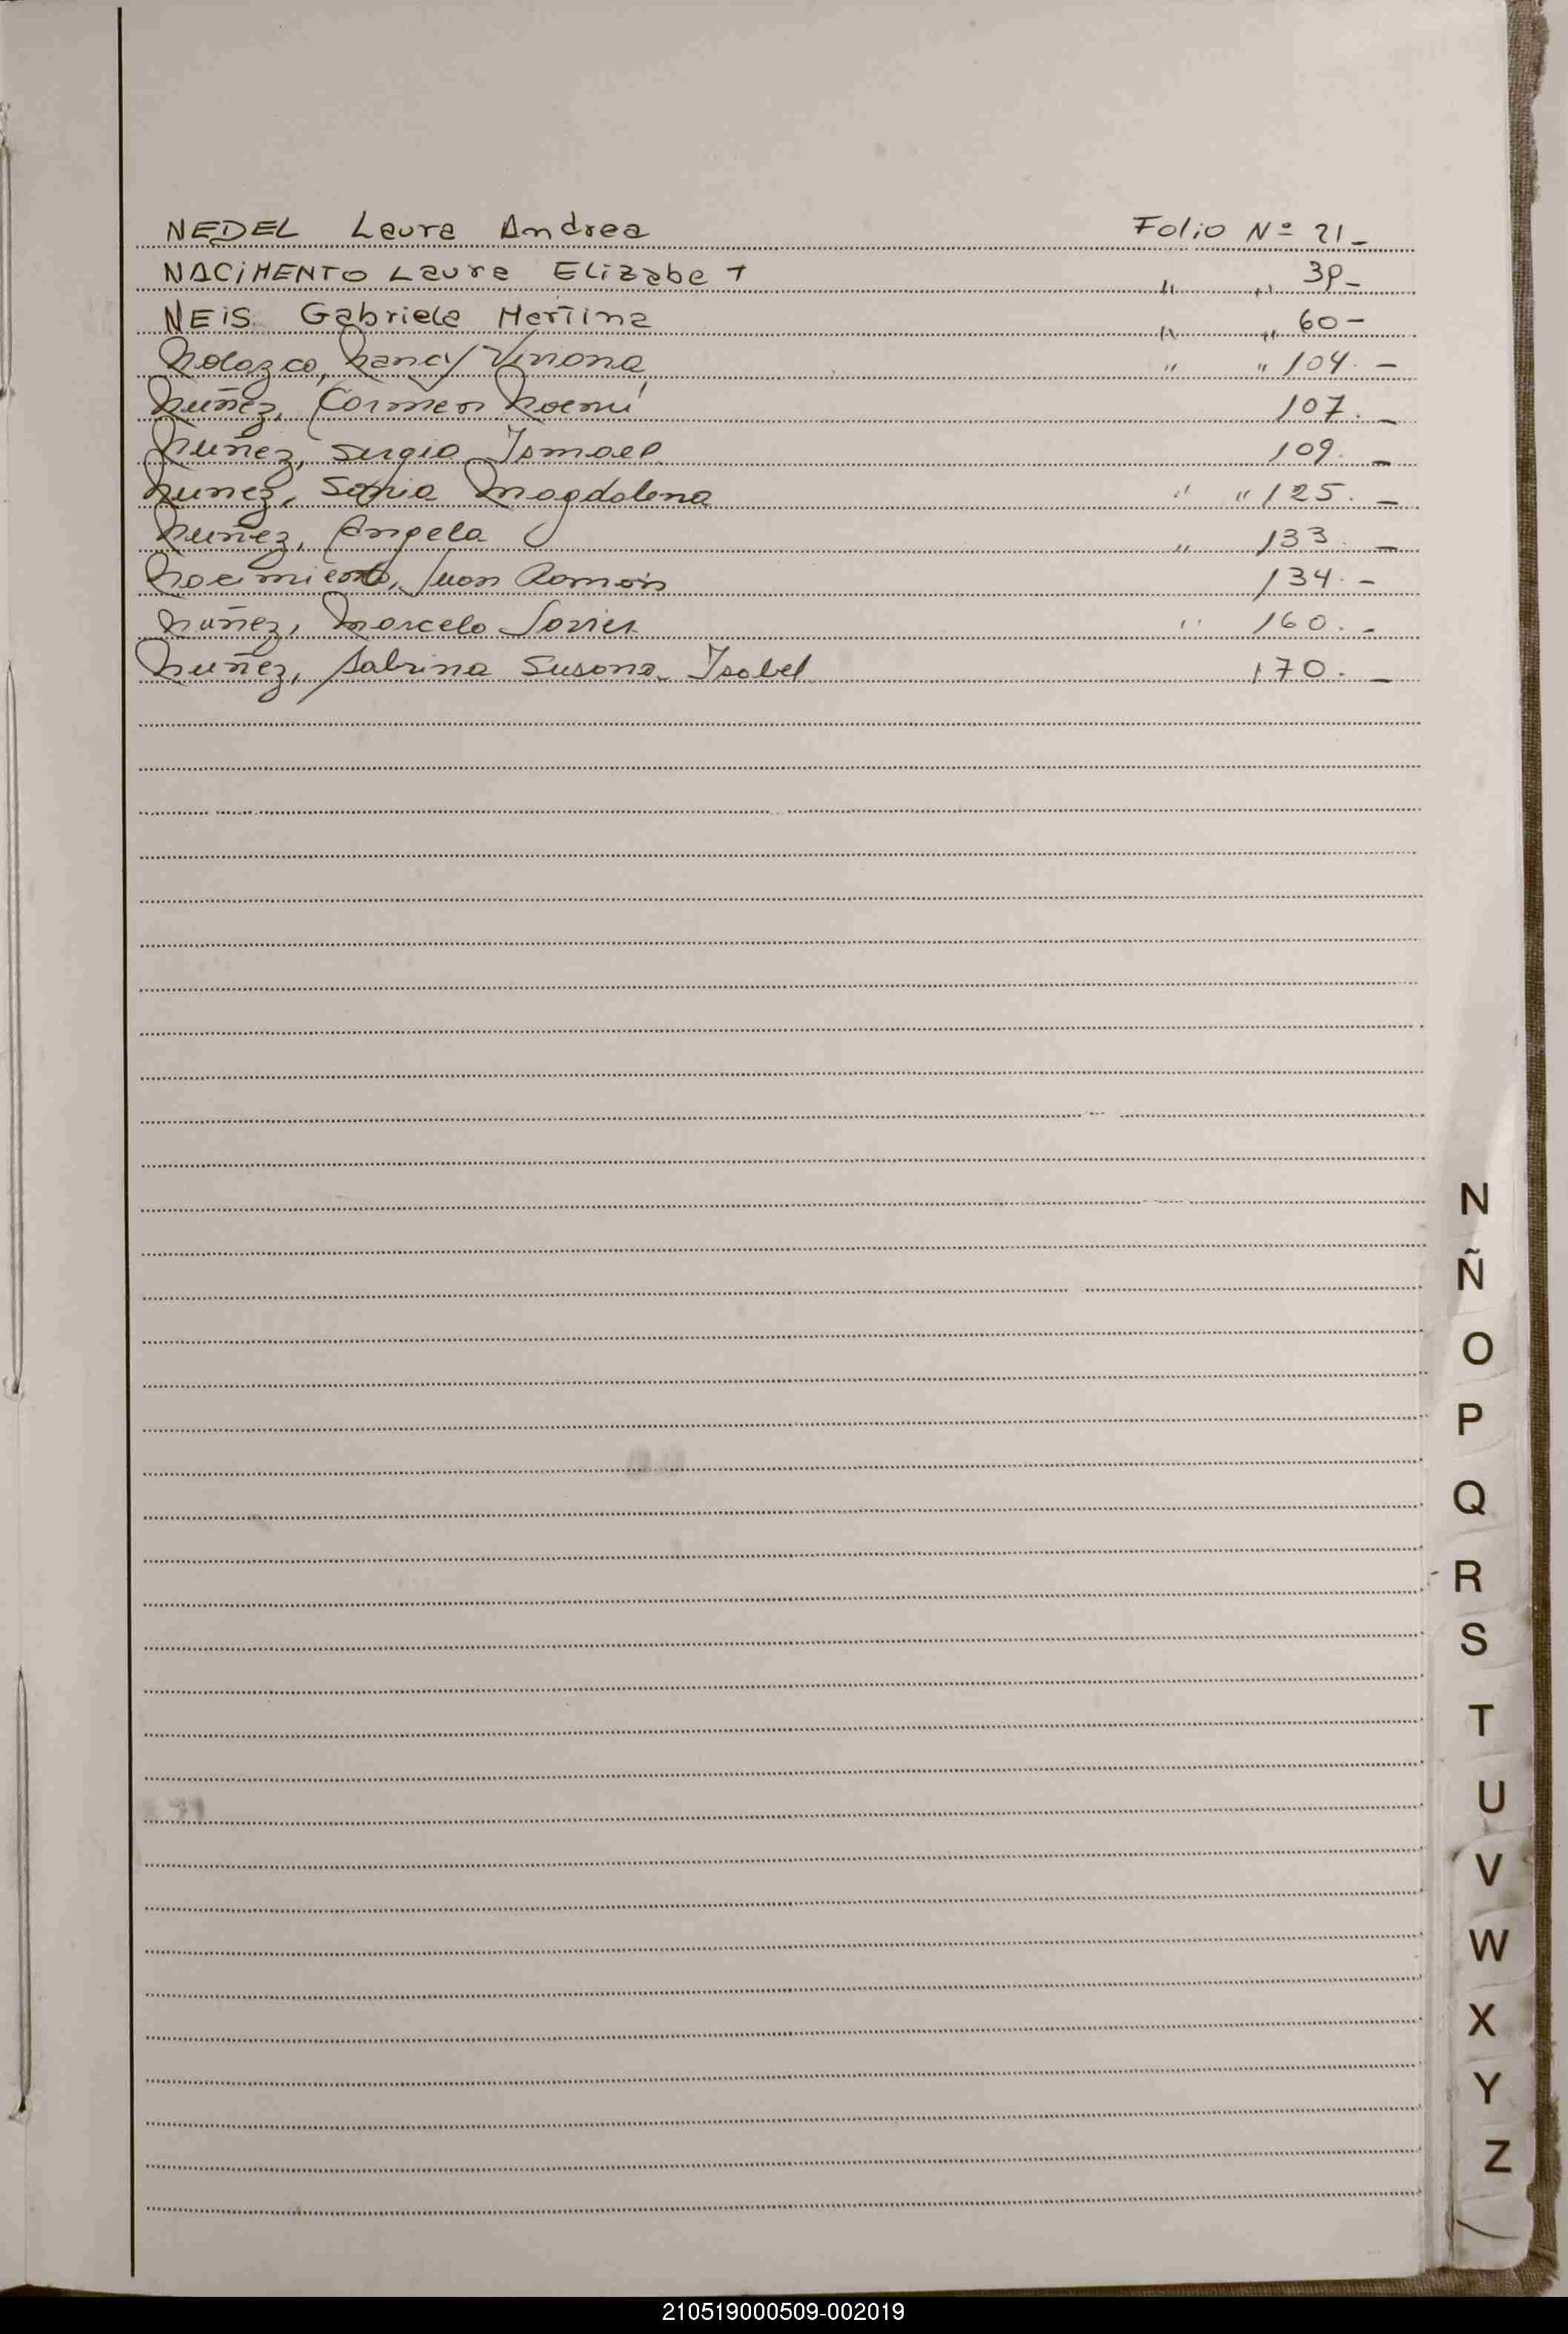 NEDEL Laura Andrea Folio Nº 21-
NACIMENTO Laura Elizabet " " 39-
NEIS Gabriela Martina " " 60-
Nolazco, Nancy Viviana " " 104.-
Nuñez, Carmen Noemí 107.-
Nuñez, Sergio Ismael 109.-
Nunez, Sonia Magdalena " " 125.-
Nuñez, Angela " 133.-
Nacimiento, Juan Ramón 134.-
Nuñez, Marcelo Javier " 160.-
Nuñez, Sabrina Susana Isabel 170.-
N
Ñ
O
P
Q
R
S
T
U
V
W
X
Y
Z
210519000509-002019